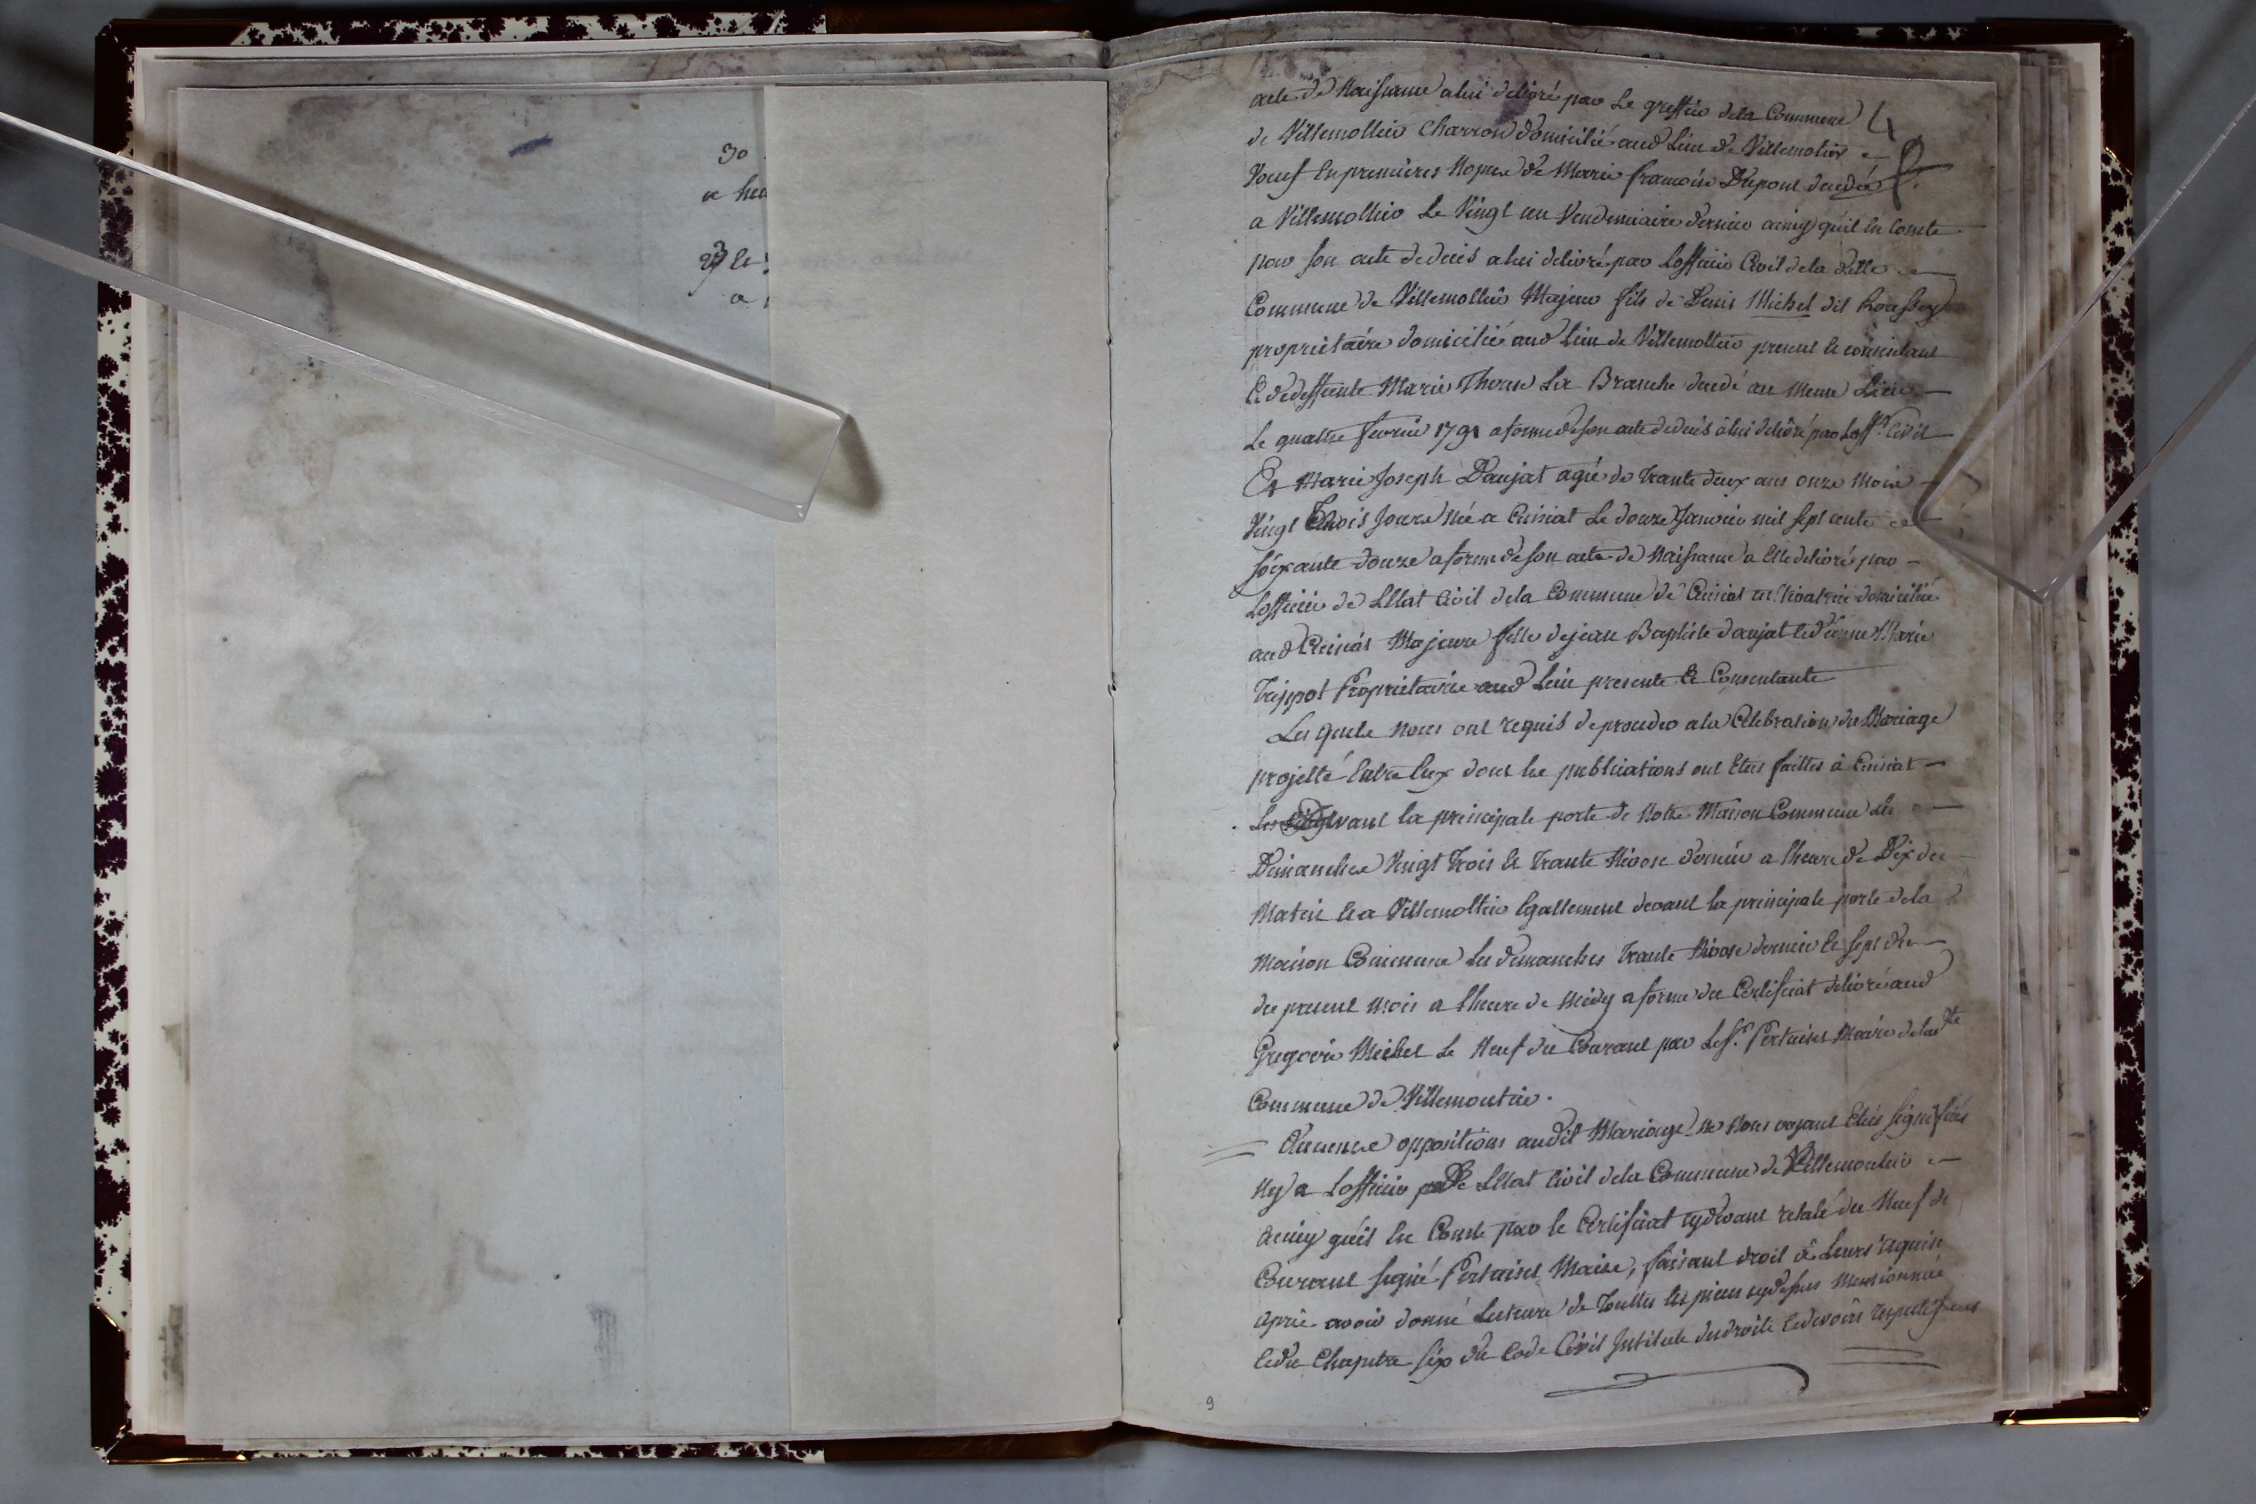 30
a heu
23 et
a
acte de Naissance a lui delivré par Le greffier dela Commune 4
de Villemottier charron domicilié aud Lieu de Villemotier
Veuf En premieres Nopces de Marie francoise Dupont decedée
a Villemottier Le Vingt un Vendemiaire dernier ainsy qu'il en Conste
par son acte de deces a lui delivré par Lofficier Civil de la ditte
Commune de Villemottier Majeur fils de Denis Michel dit
proprietaire domicilié aud Lieu de Villemottier present et consentant
Et de deffunte Marie Therese La Branche decedé au Meme Lieu
Le quattre fevrier 1791 a forme de son acte de deces à lui delivré par Loffr Civil
Et Marie Joseph Daujat agée de trante deux ans onze Mois
Vingt Trois Jours Née a Cuisiat Le douze Janvier mil sept cents
soixante douze a forme de son acte de Naissance a Elle delivré par
Lofficier de LEtat Civil dela Commune de Cuisiat domiciliée
aud Cuisiat Majeure fille de jean Baptiste daujat et de Marie
Trippot Proprietaire aud Lieu presente Et Consentante
Les quels Nous ont requis de proceder a la Celebration du Mariage
projetté Entre Eux dont les publications ont Etés faittes à Cuisiat
Les devant la principale porte de Notre Maison Commune les
Dimanches Vingt Trois Et trante Nivose dernier a lheure de Dix du
Matin Et a Villemottier Egallement devant la principale porte dela
Maison Commune Les dimanches trante Nivose dernier et sept du
du present Mois a lheure de Midy a forme du Certificat delivré aud
Gregoire Michel Le Neuf du Courant par Le Sr. Pertuiset Maire dela dte
Commune de Villemoutier.
Aucunes oppositions audit Mariage ne Nous ayant Etés signifiées
Ny a Lofficier de LEtat Civil dela Commune de Villemoutier
ainsy qu'il en Conste par le Certificat cydevant relaté du Neuf du
Courant signé Pertuiset Maire, faisant droit à Leurs requis
après avoir donné Lecture de Touttes les pieces cydessus Mentionnées
Et du Chapitre six du Code Civil Intitulé des droits et devoirs respectifs
9